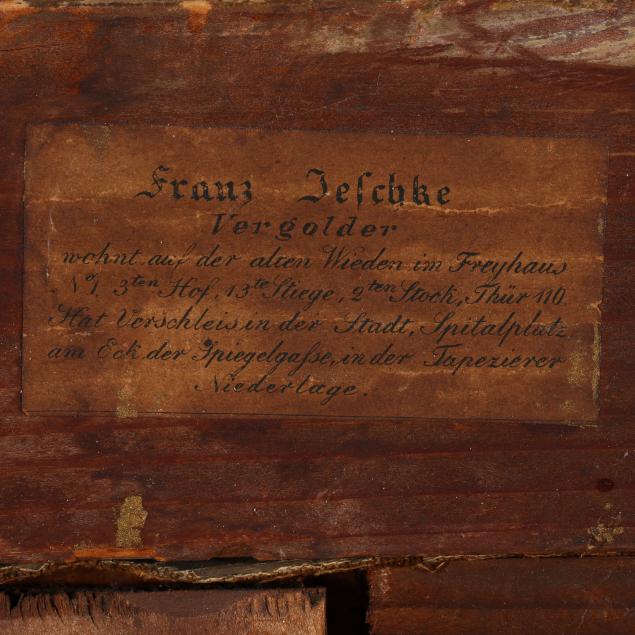 Franz Jeſchke
Vergolder
wohnt auf der alten Wieden im Freyhaus
N° 1, 3ten Hof, 13te Stiege, 2ten Stock, Thür 110.
Hat Verschleis in der Stadt, Spitalplatz
am Eck der Spiegelgaſse, in der Tapezierer
Niederlage.